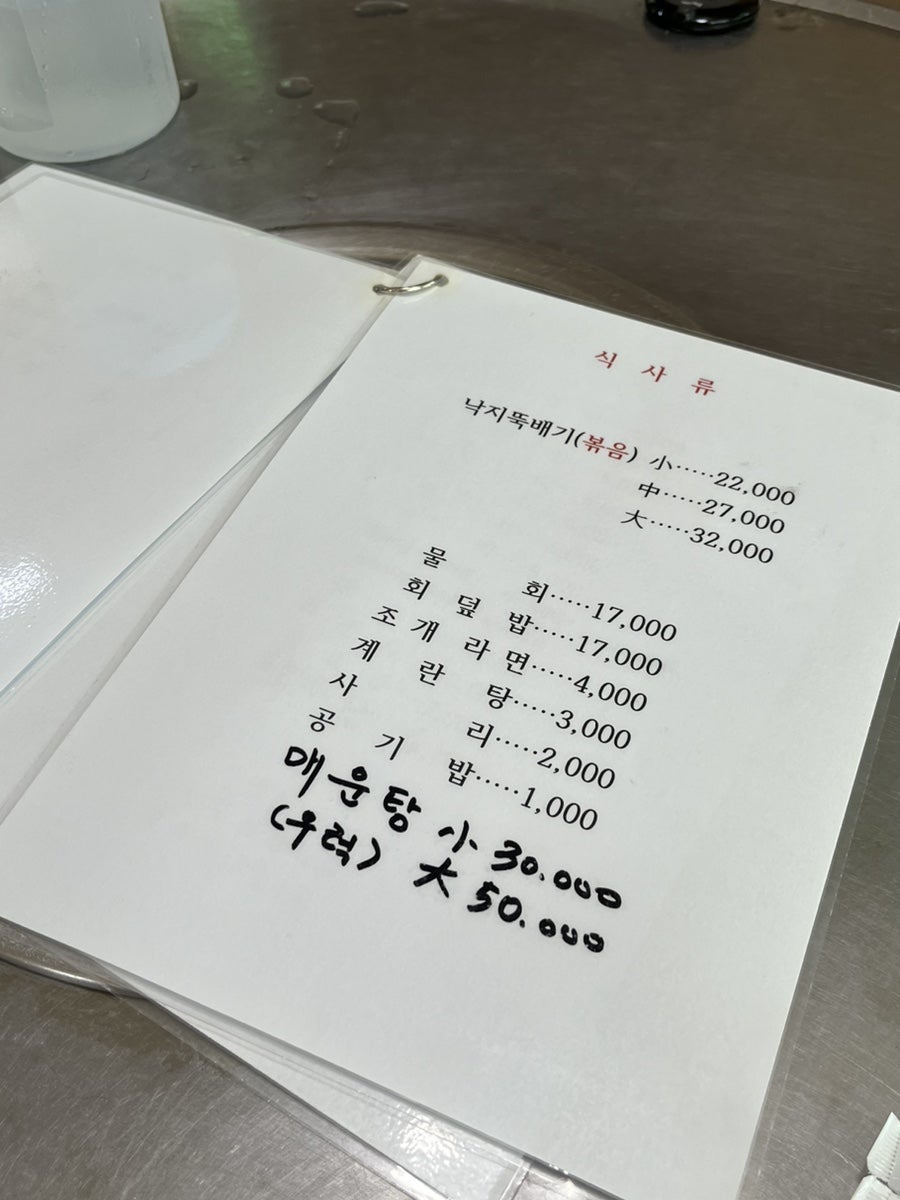 식 사 류
낙지뚝배기(볶음) 小·····22,000
中·····27,000
大·····32,000
물 회·····17,000
회 덮 밥·····17,000
조 개 라 면·····4,000
계 란 탕·····3,000
사 리·····2,000
공 기 밥·····1,000
매운탕 小 30.000
(우럭) 大 50.000